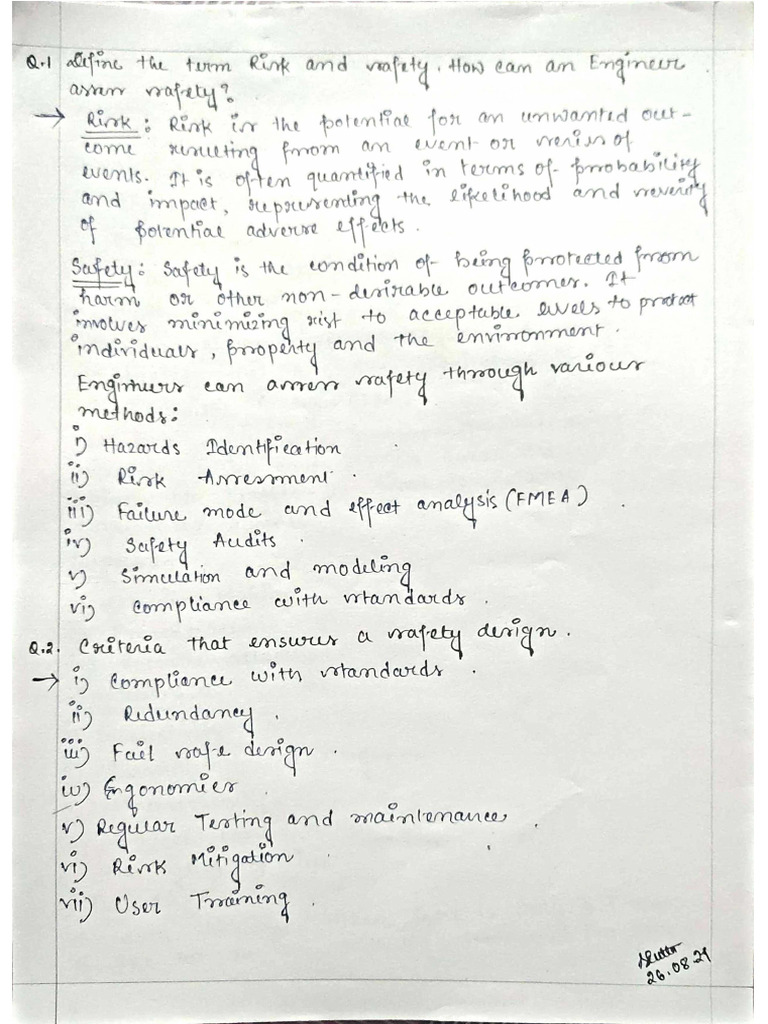 Q.1 Define the term Risk and safety. How can an Engineer
assess safety?
→ Risk : Risk is the potential for an unwanted out-
come resulting from an event or series of
events. It is often quantified in terms of probability
and impact, representing the likelihood and severity
of potential adverse effects.
Safety : Safety is the condition of being protected from
harm or other non-desirable outcomes. It
involves minimizing risk to acceptable levels to protect
individuals, property and the environment.
Engineers can assess safety through various
methods:
i) Hazards Identification
ii) Risk Assessment.
iii) Failure mode and effect analysis (FMEA)
iv) Safety Audits.
v) Simulation and modeling
vi) compliance with standards.
Q.2. Criteria that ensures a safety design.
→ i) compliance with standards.
ii) Redundancy.
iii) Fail safe design.
iv) Ergonomics
v) Regular Testing and maintenance.
vi) Risk Mitigation
vii) User Training.
26.08.24